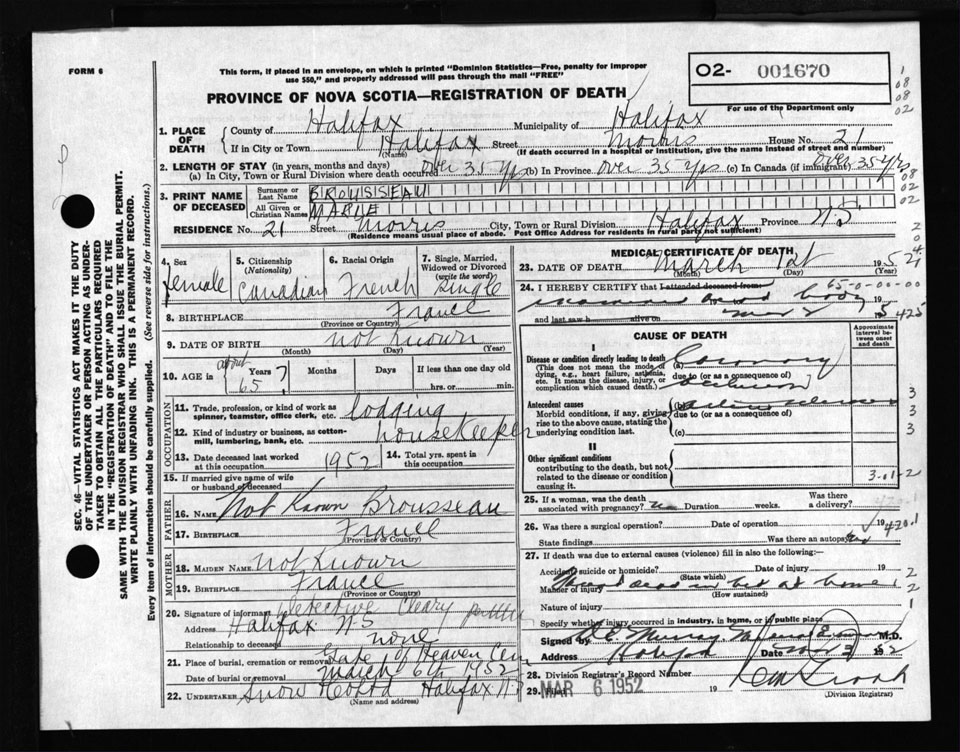 FORM 6
This form, if placed in an envelope, on which is printed "Dominion Statistics—Free, penalty for improper
use $50," and properly addressed will pass through the mail "FREE"
02- 001670
For use of the Department only
PROVINCE OF NOVA SCOTIA—REGISTRATION OF DEATH
1. PLACE OF DEATH
County of Halifax Municipality of Halifax
If in City or Town Halifax Street Morris House No. 21
(Name) (If death occurred in a hospital or institution, give the name instead of street and number)
2. LENGTH OF STAY (in years, months and days)
(a) In City, Town or Rural Division where death occurred over 35 yrs (b) In Province over 35 yrs (c) In Canada (if immigrant) over 35 yrs
3. PRINT NAME OF DECEASED
Surname or Last Name BROUSSEAU
All Given or Christian Names MARIE
RESIDENCE No. 21 Street Morris City, Town or Rural Division Halifax Province N.S
(Residence means usual place of abode. Post Office Address for residents in rural parts not sufficient)
4. Sex
female
5. Citizenship
(Nationality)
Canadian
6. Racial Origin
French
7. Single, Married,
Widowed or Divorced
(write the word)
Single
8. BIRTHPLACE France
(Province or Country)
9. DATE OF BIRTH not known
(Month) (Day) (Year)
10. AGE in about 65 ? Years Months Days If less than one day old
hrs. or min.
OCCUPATION
11. Trade, profession, or kind of work as
spinner, teamster, office clerk, etc. lodging
12. Kind of industry or business, as cotton-
mill, lumbering, bank, etc. housekeeper
13. Date deceased last worked
at this occupation 1952
14. Total yrs. spent in
this occupation
15. If married give name of wife
or husband of deceased
FATHER
16. NAME Not Known Brousseau
17. BIRTHPLACE France
(Province or Country)
MOTHER
18. MAIDEN NAME not known
19. BIRTHPLACE France
(Province or Country)
20. Signature of informant Detective Cleary
Address Halifax N-S
Relationship to deceased none
21. Place of burial, cremation or removal Gate of Heaven Cem
Date of burial or removal March 6th 1952
22. UNDERTAKER Snow & Co Ltd Halifax N.S
(Name and address)
MEDICAL CERTIFICATE OF DEATH
23. DATE OF DEATH March 1st 1952
(Month) (Day) (Year)
24. I HEREBY CERTIFY that I attended deceased from 65-0-00-00
body 19
and last saw h alive on 195
CAUSE OF DEATH
Approximate
interval be-
tween onset
and death
I
Disease or condition directly leading to death
(This does not mean the mode of
dying, e.g., heart failure, asthenia,
etc. It means the disease, injury, or
complication which caused death.)
(a) Coronary
due to (or as a consequence of)
Antecedent causes
Morbid conditions, if any, giving
rise to the above cause, stating the
underlying condition last.
(b)
due to (or as a consequence of)
(c)
II
Other significant conditions
contributing to the death, but not
related to the disease or condition
causing it.
25. If a woman, was the death
associated with pregnancy? no Duration weeks. Was there
a delivery?
26. Was there a surgical operation? Date of operation 19
State findings Was there an autopsy?
27. If death was due to external causes (violence) fill in also the following:—
Accident, suicide or homicide? Date of injury 19
(State which)
Manner of injury Found dead in bed at home
(How sustained)
Nature of injury
Specify whether injury occurred in industry, in home, or in public place
Signed by Murray M.D.
Address Halifax Date 1952
28. Division Registrar's Record Number
29. Filed MAR 6 1952 19
(Division Registrar)
SEC. 46—VITAL STATISTICS ACT MAKES IT THE DUTY
OF THE UNDERTAKER OR PERSON ACTING AS UNDER-
TAKER TO OBTAIN ALL THE PARTICULARS REQUIRED
IN THE "REGISTRATION OF DEATH" AND TO FILE THE
SAME WITH THE DIVISION REGISTRAR WHO SHALL ISSUE THE BURIAL PERMIT.
WRITE PLAINLY WITH UNFADING INK. THIS IS A PERMANENT RECORD.
Every item of information should be carefully supplied. (See reverse side for instructions.)